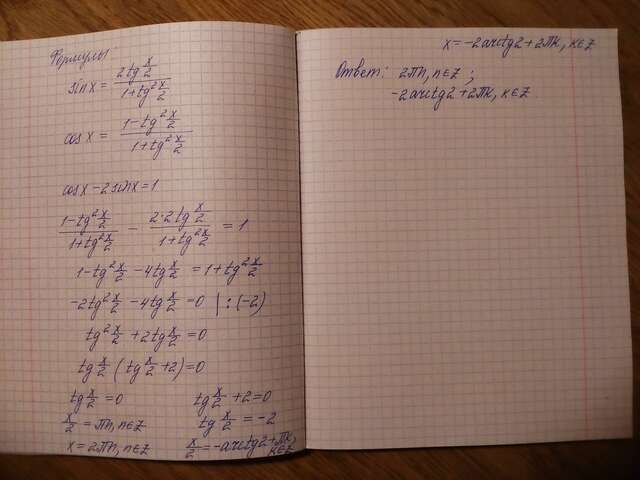 Формулы:
sin x = 2tg x/2 / 1+tg² x/2
cos x = 1-tg² x/2 / 1+tg² x/2
cos x - 2 sin x = 1
1-tg² x/2 / 1+tg² x/2 - 2·2tg x/2 / 1+tg² x/2 = 1
1-tg² x/2 - 4tg x/2 = 1+tg² x/2
-2tg² x/2 - 4tg x/2 = 0 | :(-2)
tg² x/2 + 2tg x/2 = 0
tg x/2 (tg x/2 + 2) = 0
tg x/2 = 0 tg x/2 + 2 = 0
x/2 = πn, n∈Z tg x/2 = -2
x = 2πn, n∈Z x/2 = -arctg2 + πk, k∈Z
x = -2arctg2 + 2πk, k∈Z
Ответ: 2πn, n∈Z ;
-2arctg2 + 2πk, k∈Z